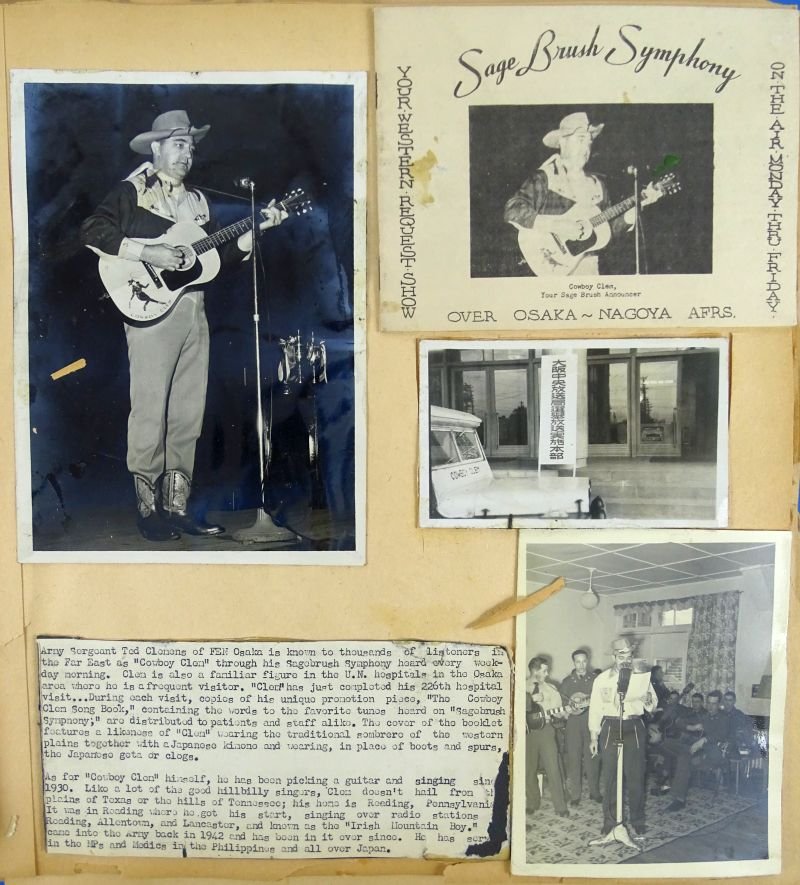 Sage Brush Symphony
YOUR·WESTERN·REQUEST·SHOW
ON·THE·AIR·MONDAY·THRU·FRIDAY·
Cowboy Clem,
Your Sage Brush Announcer
OVER OSAKA~NAGOYA AFRS.
COWBOY CLEM
大阪中央放送局選挙放送実施本部
COWBOY CLEM
Army Sergeant Ted Clemens of FEN Osaka is known to thousands of listeners in
the Far East as "Cowboy Clem" through his Sagebrush Symphony heard every week-
day morning. Clem is also a familiar figure in the U.N. hospitals in the Osaka
area where he is a frequent visitor. "Clem" has just completed his 226th hospital
visit...During each visit, copies of his unique promotion piece, "The Cowboy
Clem Song Book," containing the words to the favorite tunes heard on "Sagebrush
Symphony;" are distributed to patients and staff alike. The cover of the booklet
features a likeness of "Clem" wearing the traditional sombrero of the western
plains together with a Japanese kimono and wearing, in place of boots and spurs,
the Japanese geta or clogs.
As for "Cowboy Clem" himself, he has been picking a guitar and singing sinc
1930. Like a lot of the good hillbilly singers, Clem doesn't hail from th
plains of Texas or the hills of Tennessee; his home is Reading, Pennsylvania
It was in Reading where he got his start, singing over radio stations
Reading, Allentown, and Lancaster, and known as the "Irish Mountain Boy."
came into the Army back in 1942 and has been in it ever since. He has serv
in the MPs and Medics in the Philippines and all over Japan.